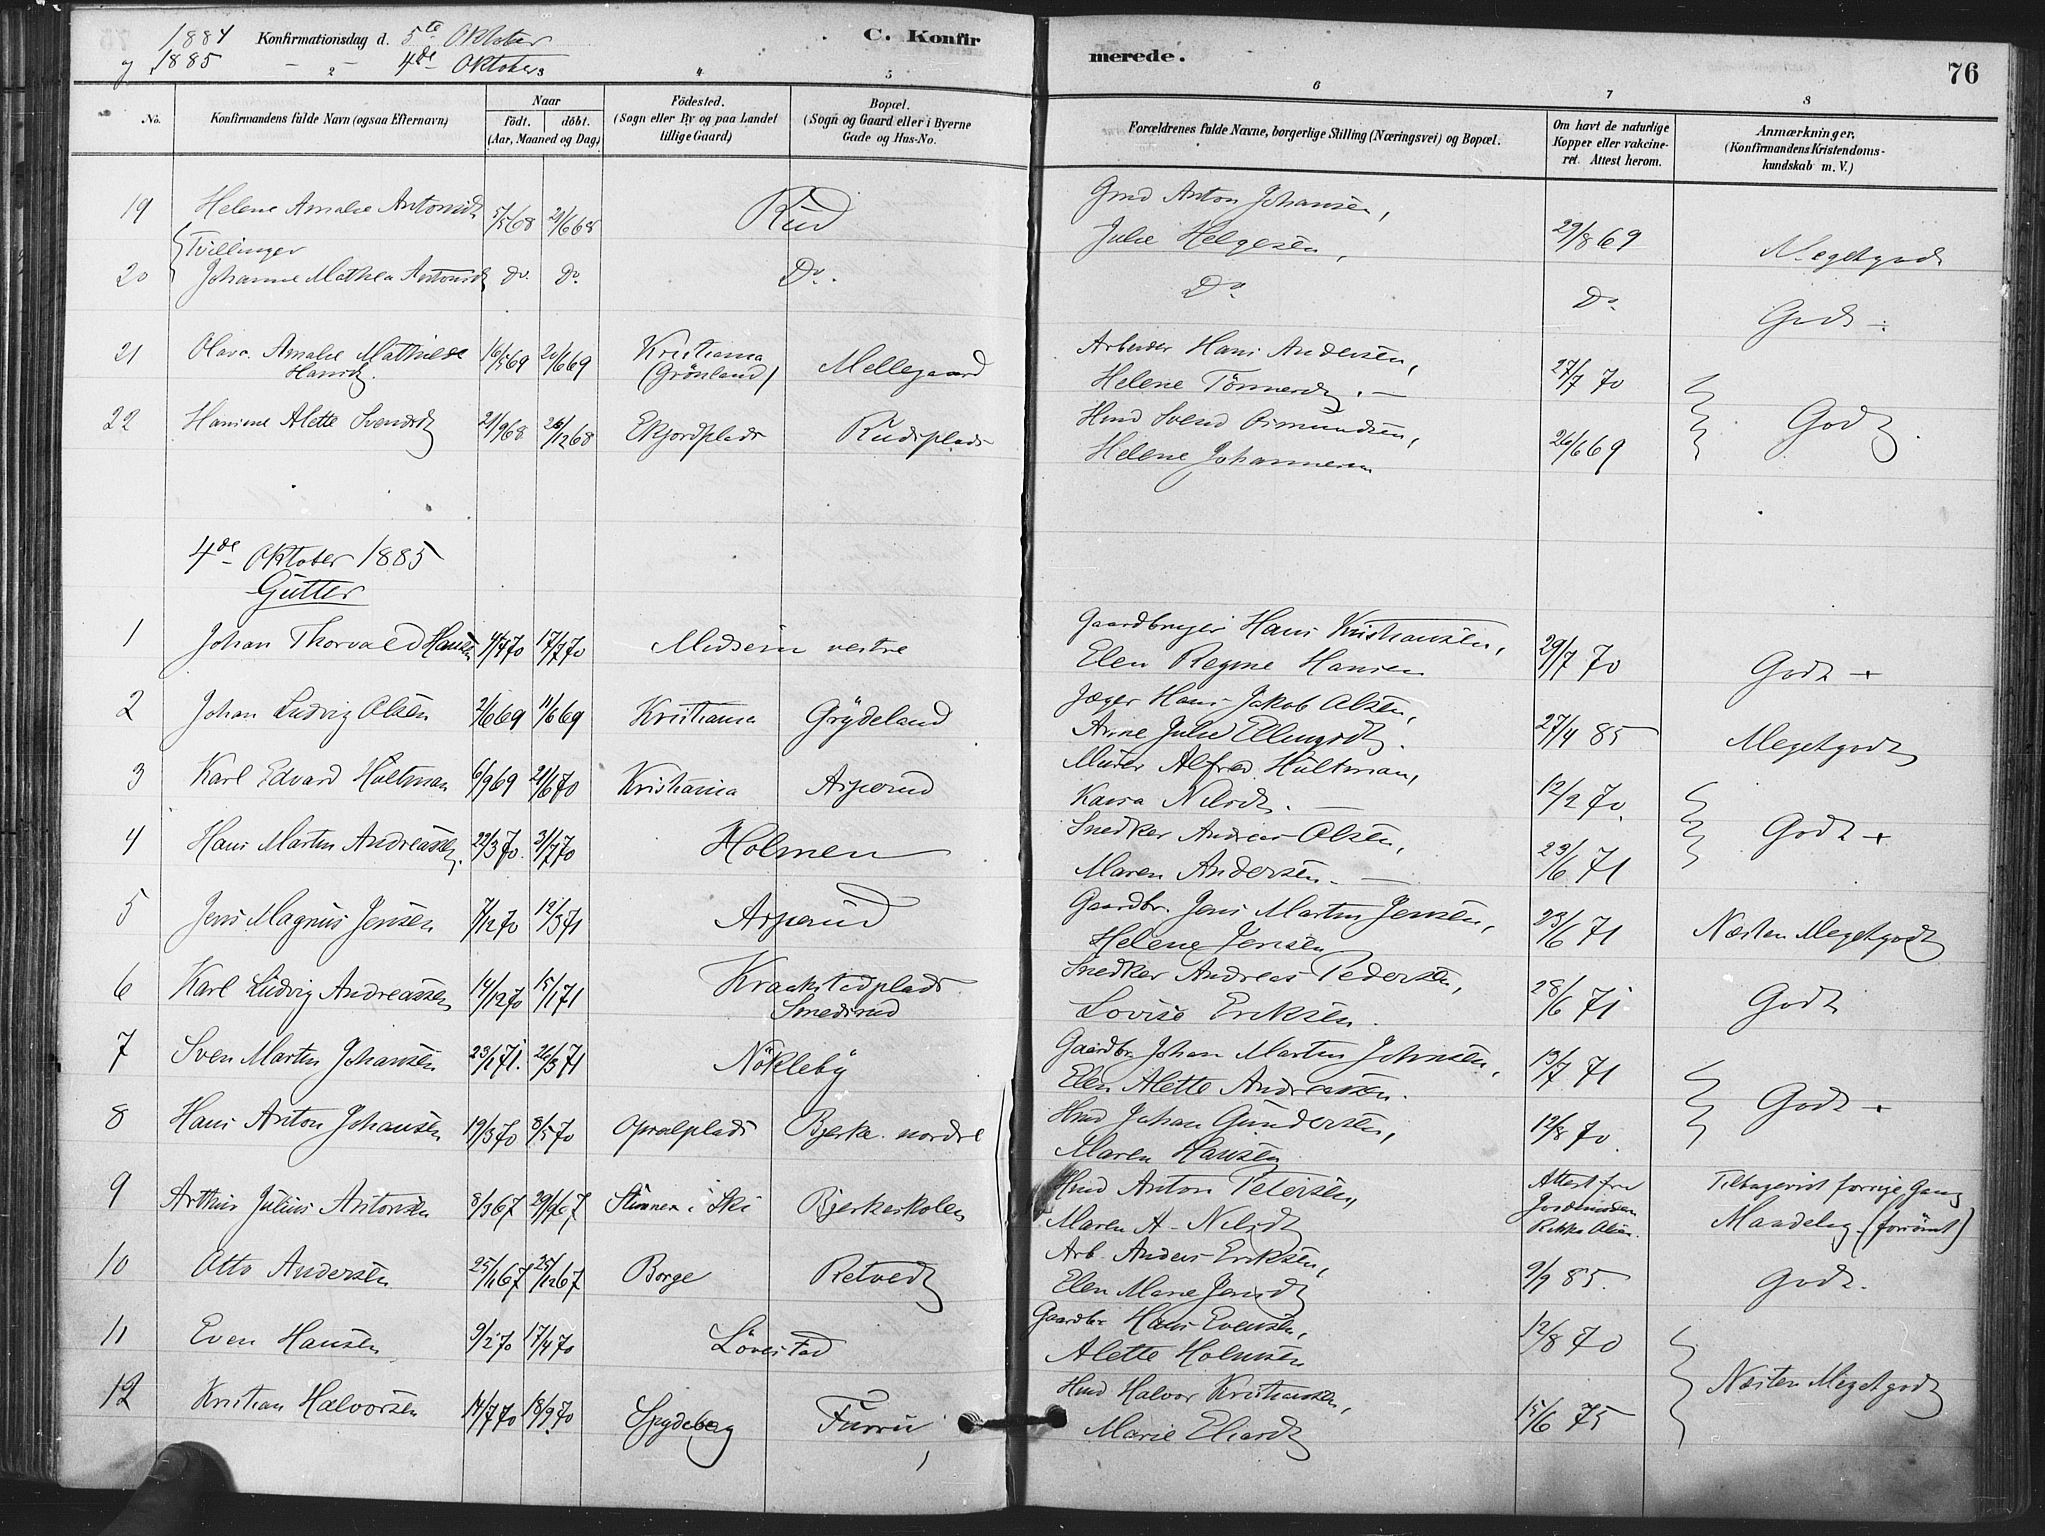 1884 Konfirmationsdag d. 5te Oktober C. Konfirmerede. 76
og 1885 — " — 4de Oktober
2 3 4 5 6 7 8
No. Konfirmandens fulde Navn (ogsaa Efternavn) Naar födt. döbt. (Aar, Maaned og Dag) Födested. (Sogn eller By og paa Landet tillige Gaard.) Bopæl. (Sogn og Gaard eller i Byerne Gade og Hus-No. Forældrenes fulde Navne, borgerlige Stilling (Næringsvei) og Bopæl. Om havt de naturlige Kopper eller vakcineret. Attest herom. Anmærkninger. (Konfirmandens Kristendomskundskab m. V.)
19 Helene Amalie Antonsdt 5/5 68 21/6 68 Rud Gmd Anton Johansen, Julie Helgesen, 29/8 69 Megetgodt
Tvillinger
20 Johanne Mathea Antonsdt Do. Do. Do. Do. Do. Godt
21 Olava Amalie Mathilde Hansdt. 16/5 69 20/6 69 Kristiania (Grönland) Mellegaard Arbeider Hans Andersen, Helene Tönnesdt. — 27/7 70
22 Hanine Alette Svendsdt 21/9 68 26/12 68 Ekjordplads Rudsplads Hmd Svend Asmundsen, Helene Johannesen 26/6 69 Godt.
4de Oktober 1885
Gutter
1 Johan Thorvald Hansen 4/4 70 17/7 70 Midsem vestre Gaardbruger Hans Kristiansen, Elen Regine Hansen 29/7 70 Godt +
2 Johan Ludvig Olsen 2/6 69 11/6 69 Kristiania Grydeland Jæger Hans Jakob Olsen, Anne Julie Ellingsdt. 27/4 85 Megetgodt
3 Karl Edvard Hultman 6/9 69 21/6 70 Kristiania Asperud Murer Alfred Hultman, Kaisa Nilsdt. — 12/2 70.
4 Hans Martin Andreassen. 22/3 70. 31/7 70 Holmen Snedker Andreas Olsen, Maren Andersen. — 23/6 71 Godt +
5 Jens Magnus Jensen 7/12 70 12/3 71 Asperud Gaardbr. Jens Martin Jensen, Helene Jensen 23/6 71 Næsten Megetgodt
6 Karl Ludvig Andreassen 14/12 70 15/1 71 Kraakstadplads Smedsrud Snedker Andreas Pedersen, Lovise Eriksen. 28/6 71 Godt
7 Sven Martin Johansen 23/1 71. 26/3 71 Nökleby Gaardbr Johan Martin Johnsen, Elen Alette Andreassen. 13/7 71
8 Hans Anton Johansen 19/3 70 8/5 70 Opsalplads Bjerke nordre Hmd Johan Gundersen, Maren Hansen 12/8 70. Godt +
9 Arthur Julius Antonsen 8/3 67 29/6 67 i Ski Bjerkeskolen Hmd Anton Petersen, Maren A. Nilsdt Attest fra Jordmoder Rikka Olsen. Tilbagevist forrige Gang Maadelig. (forsömt)
10 Otto Andersen 25/1 67 25/12 67 Borge Retvedt Arb. Anders Eriksen, Elen Marie Jensdt 9/9 85. Godt.
11 Even Hansen 9/2 70 17/4 70 Lövestad Gaardbr Hans Evensen, Alette Holmsen 12/8 70
12 Kristian Halvorsen 14/7 70 18/9 70 Spydeberg Furru Hmd Halvor Kristiansen, Marie Eliasdt 15/6 75 Næsten Megetgodt